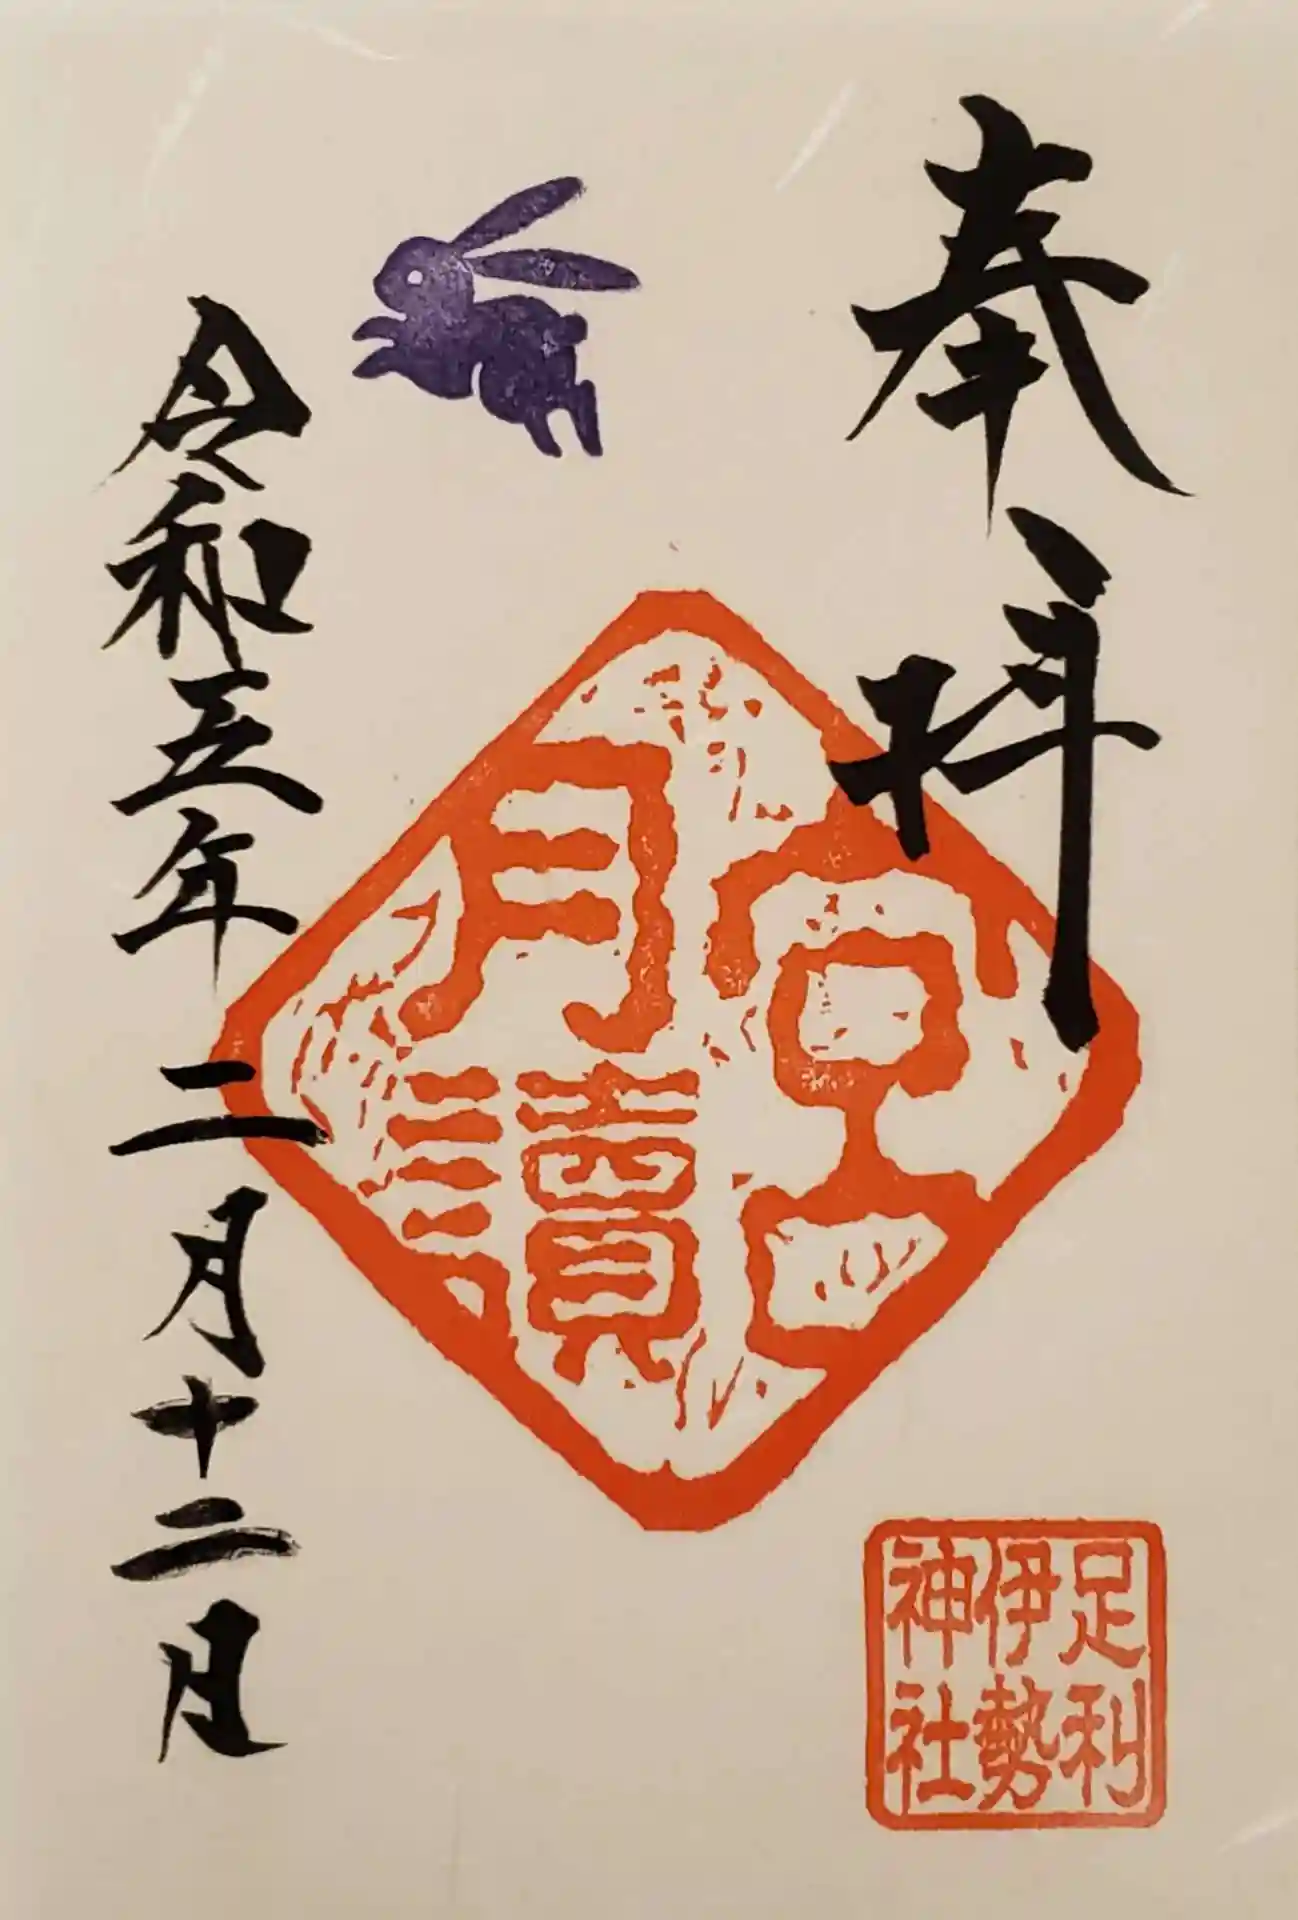 奉拝
月讀宮
足利
伊勢
神社
令和五年二月十二日